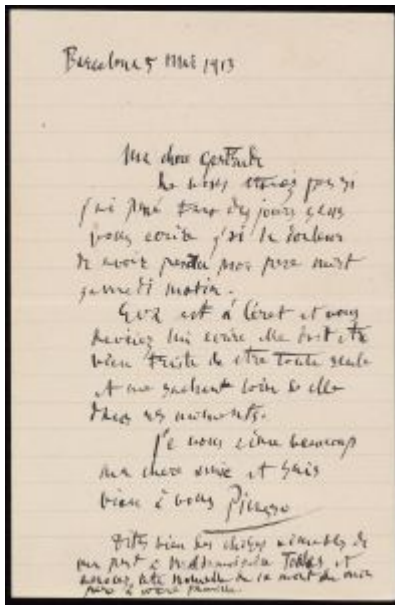 Barcelone 5 Mai 1913
Ma chere Gertrude
Ne vous etonez pas si
j'ai passé tant des jours sans
vous ecrire j'ai la douleur
de avoir perdu mon pere mort
samedi matin.
Eva est à Céret et vous
devriez lui ecrire elle doit etre
bien triste de etre toute seule
et me sachant loin de elle
dans ces moments.
Je vous aime beaucoup
ma chere amie et suis
bien à vous Picasso
Dites bien des choses aimables de
ma part à Mademoiselle Toklas et
la nouvelle de la mort de mon
pere à votre famille.